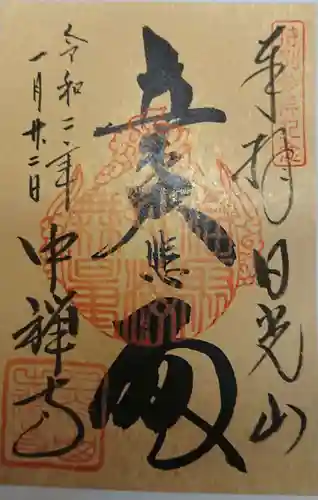 奉拝 日光山
立木
大悲殿
令和二年
一月廿二日
中禅寺